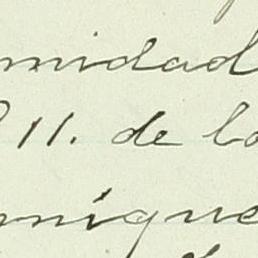 midad
11. de la
níque